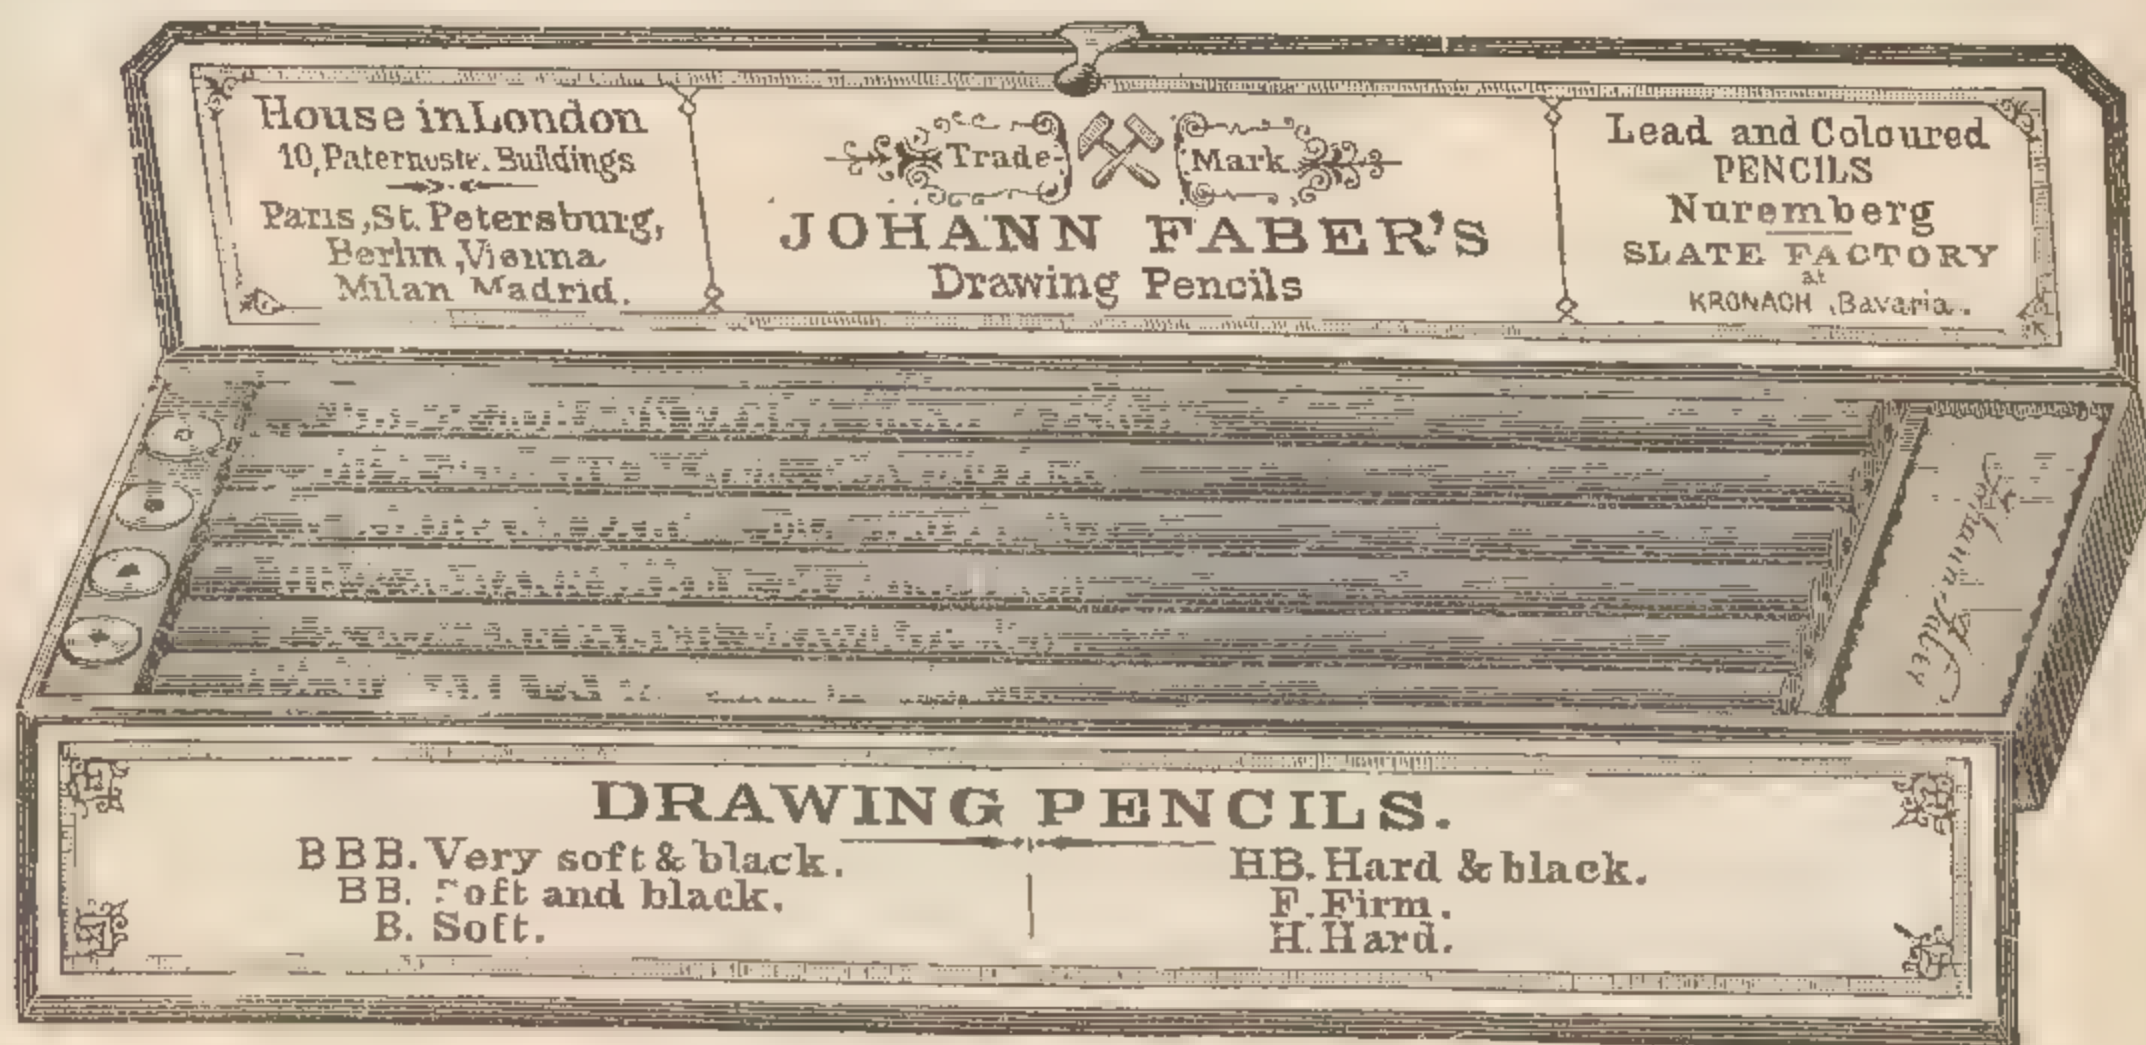 House in London
10, Paternoste. Buildings
Paris, St. Petersburg,
Berlin, Vienna
Milan Madrid.
Trade Mark
JOHANN FABER'S
Drawing Pencils
Lead and Coloured
PENCILS
Nuremberg
SLATE FACTORY
at
KRONACH, Bavaria.
Johann Faber
DRAWING PENCILS.
BBB. Very soft & black.
BB. Soft and black.
B. Soft.
HB. Hard & black.
F. Firm.
H. Hard.